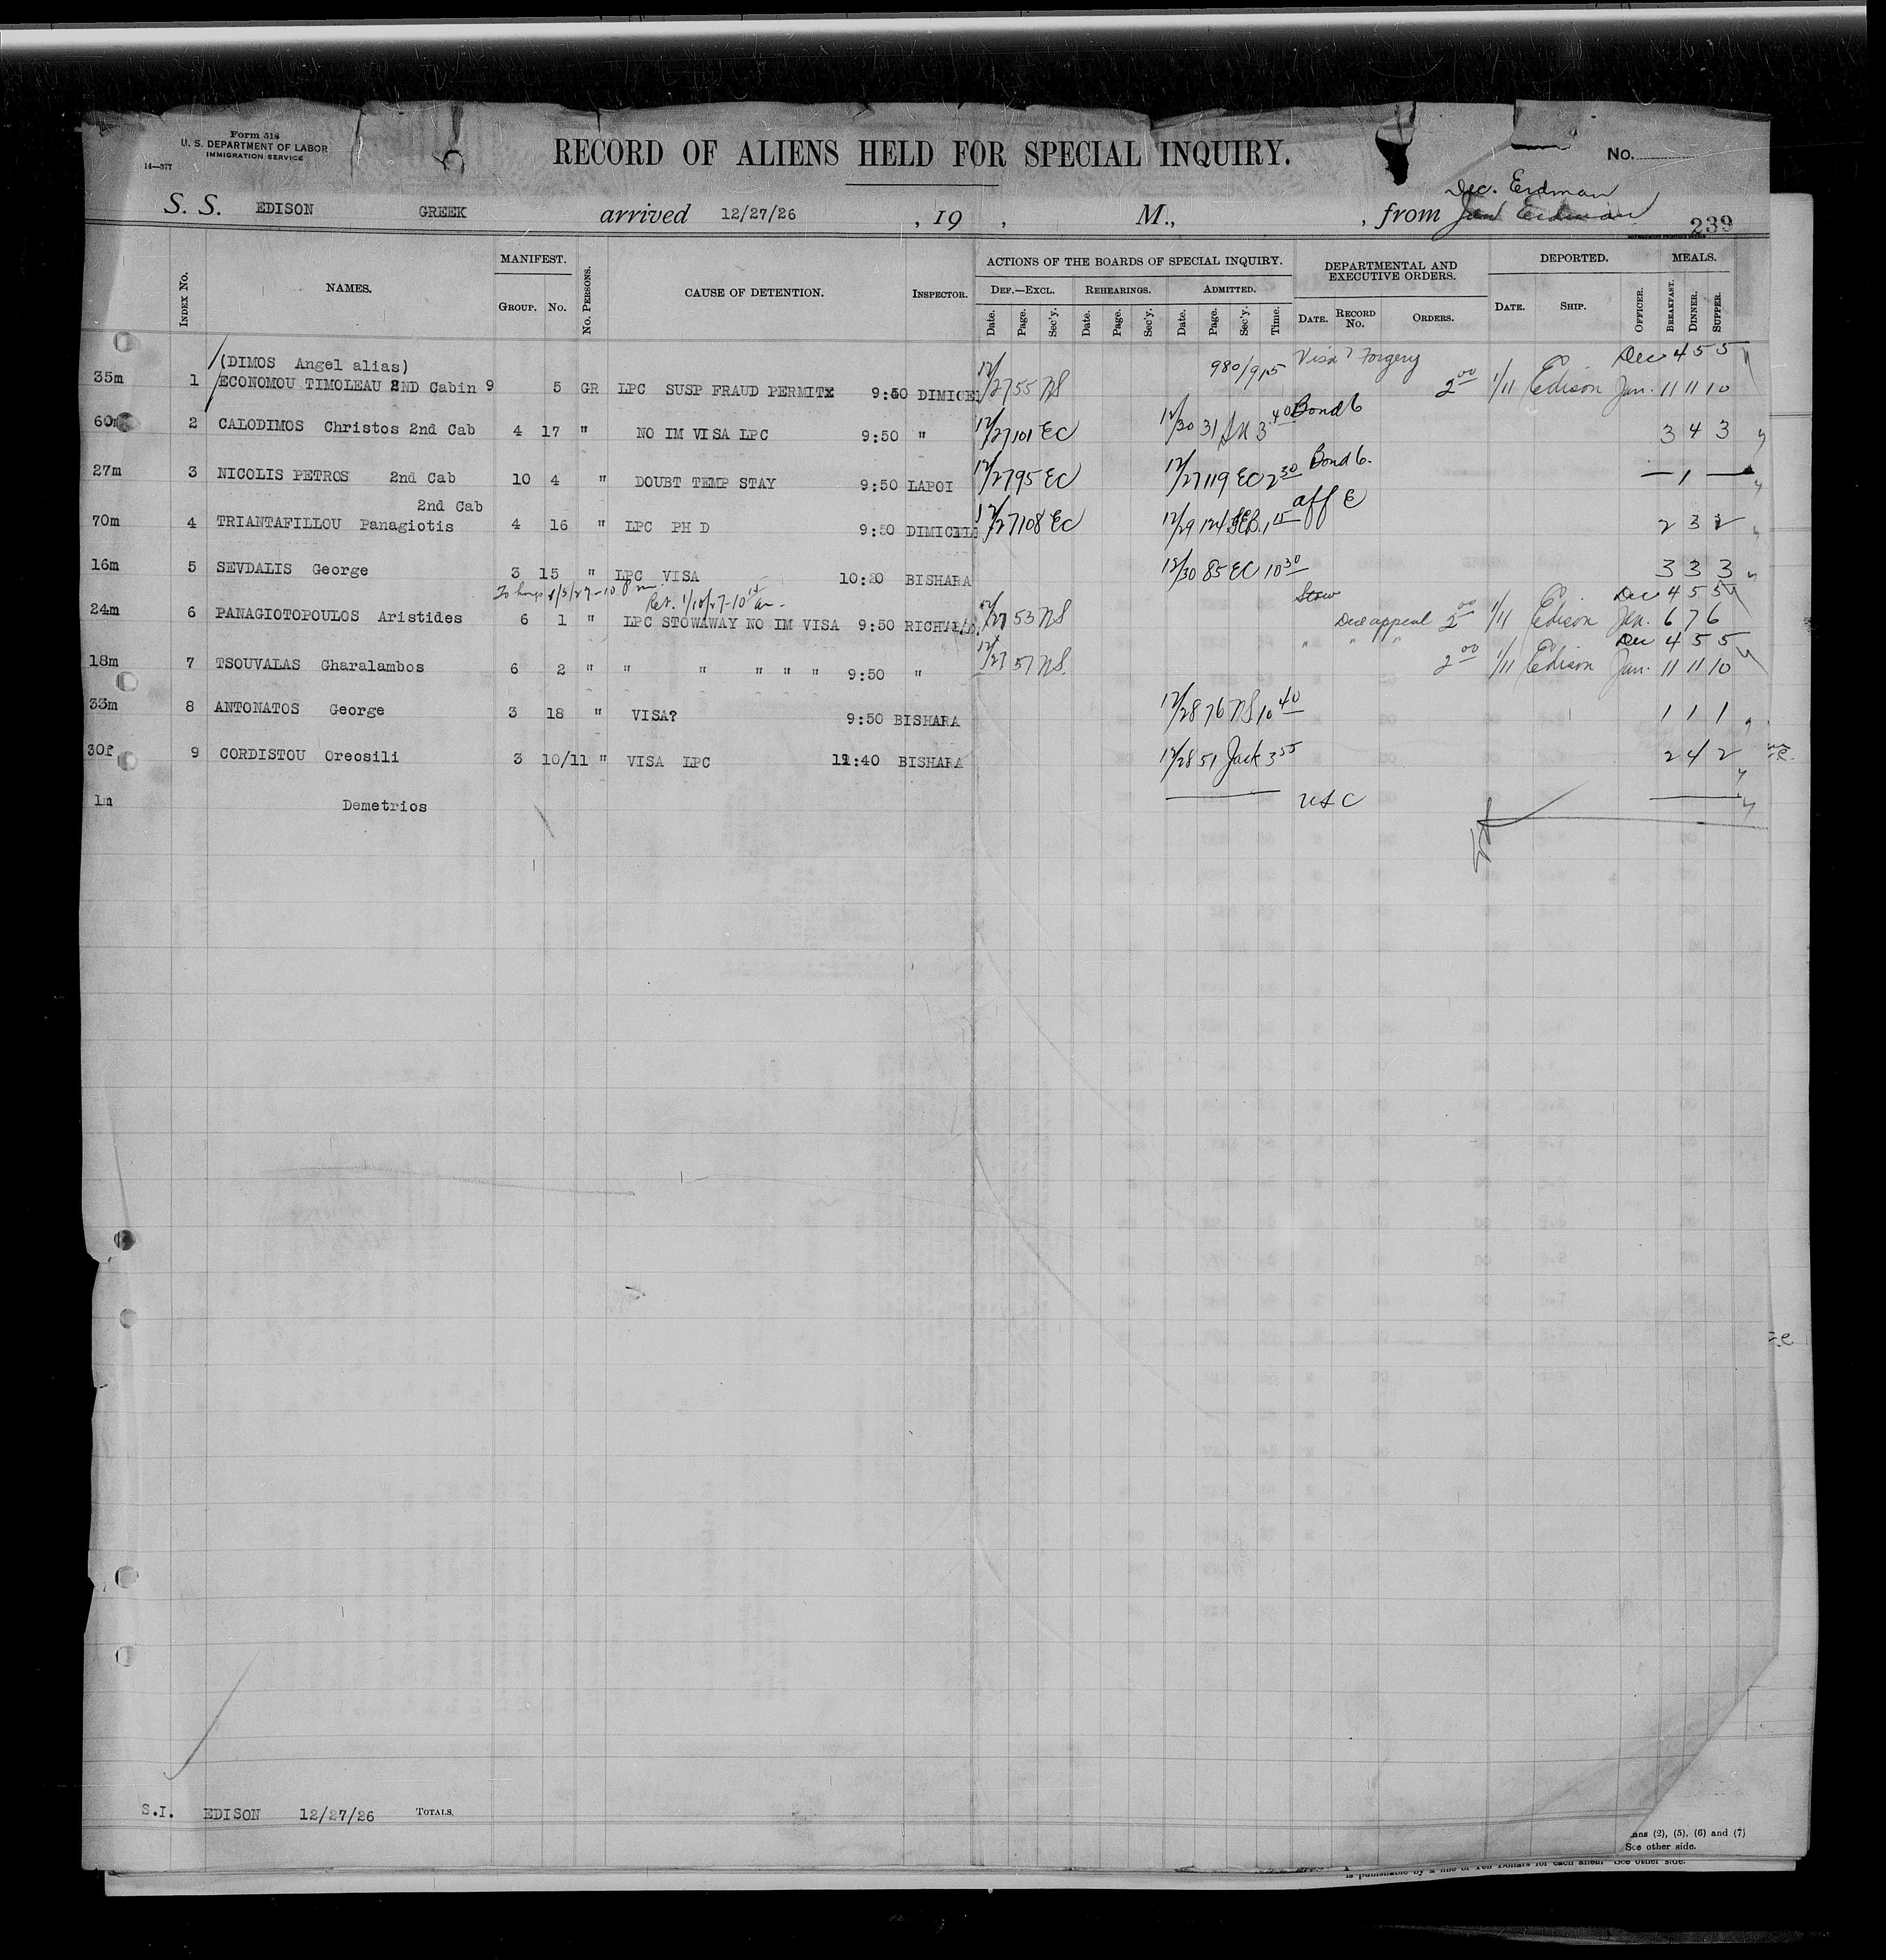 Form 518
U. S. DEPARTMENT OF LABOR
IMMIGRATION SERVICE
14—377
RECORD OF ALIENS HELD FOR SPECIAL INQUIRY.
No.
Dec. Erdman
S. S. EDISON GREEK arrived 12/27/26 , 19 , M., , from Jan Erdman 239
Index No. NAMES. MANIFEST. Group. No. No. Persons. CAUSE OF DETENTION. Inspector. ACTIONS OF THE BOARDS OF SPECIAL INQUIRY. Def.—Excl. Date. Page. Sec'y. Rehearings. Date. Page. Sec'y. Admitted. Date. Page. Sec'y. Time. DEPARTMENTAL AND EXECUTIVE ORDERS. Date. Record No. Orders. DEPORTED. Date. Ship. Officer. MEALS. Breakfast. Dinner. Supper.
(DIMOS Angel alias) 980/915 Visa? Forgery Dec 4 5 5
35m 1 ECONOMOU TIMOLEAU 2ND Cabin 9 5 GR LPC SUSP FRAUD PERMIT 9:50 DIMICEL 12/27 55 NS 2 00 1/11 Edison Jan. 11 11 10
60m 2 CALODIMOS Christos 2nd Cab 4 17 " NO IM VISA LPC 9:50 " 12/27 101 EC 12/30 31 3 40 Bond 6 3 4 3
27m 3 NICOLIS PETROS 2nd Cab 10 4 " DOUBT TEMP STAY 9:50 LAPOI 12/27 95 EC 12/27 119 EC 2 30 Bond 6. — 1 —
2nd Cab
70m 4 TRIANTAFILLOU Panagiotis 4 16 " LPC PH D 9:50 DIMICEL 12/27 108 EC 12/29 124 1 15 aff E 2 3 2
16m 5 SEVDALIS George 3 15 " LPC VISA 10:20 BISHARA 12/30 85 EC 10 30 3 3 3
To hosp 1/5/27-10 Ret. 1/10/27-10 15 am - Stow Dec 4 5 5
24m 6 PANAGIOTOPOULOS Aristides 6 1 " LPC STOWAWAY NO IM VISA 9:50 12/27 53 NS appeal 2 00 1/11 Edison Jan. 6 7 6
" " " Dec 4 5 5
18m 7 TSOUVALAS Charalambos 6 2 " " " " " " 9:50 " 12/27 57 NS. 2 00 1/11 Edison Jan. 11 11 10
33m 8 ANTONATOS George 3 18 " VISA? 9:50 BISHARA 12/28 76 NS 10 40 1 1 1
30f 9 CORDISTOU Oreosili 3 10/11 " VISA LPC 11:40 BISHARA 12/28 51 Jack 3 55 2 4 2
1m Demetrios — USC —
S.I. EDISON 12/27/26 Totals.
(2), (5), (6) and (7)
See other side.
is punishable by a fine of Ten Dollars for each alien. See other side.